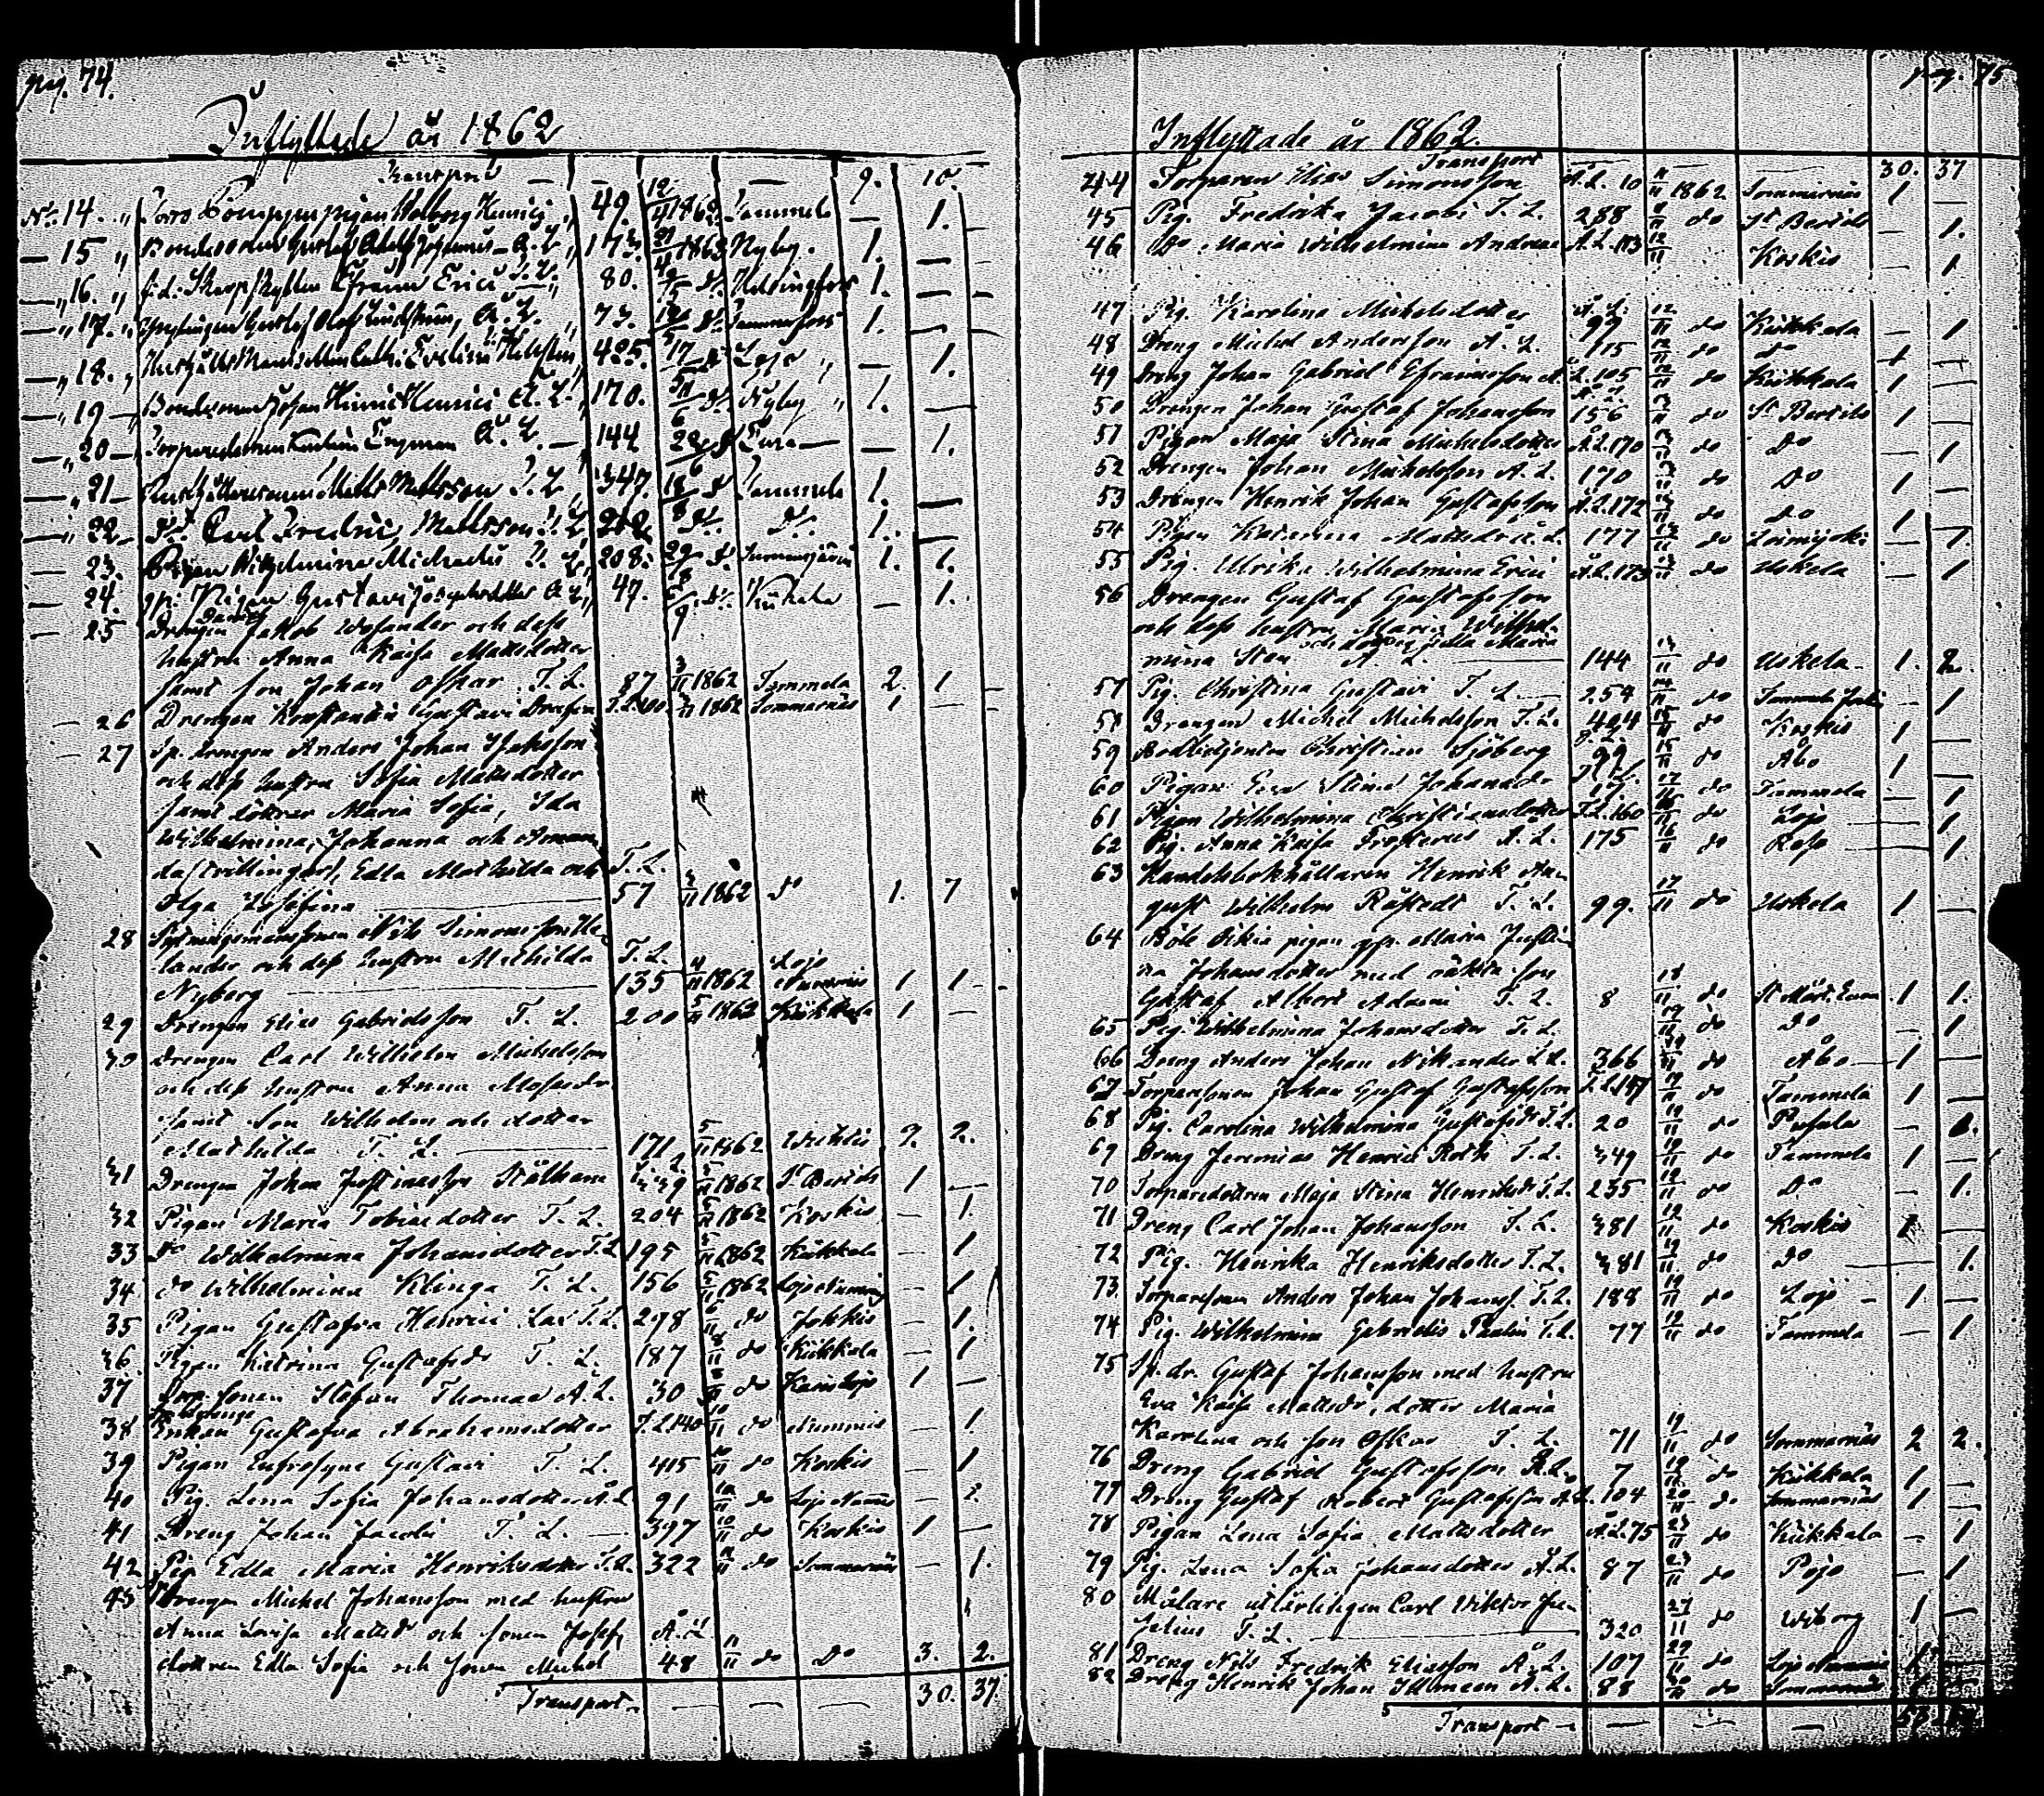 pag. 74.
Inflyttade år 1862
Transport — — — 9. 10.
No. 14. 49. 1862 Tammela — 1.
— 15 Bondesonen Gustaf Adolf Å. L. 173. 1862 Nyby. 1. —
— 16. Efraim Erici T. L. 80. do Helsingfors 1. —
— 17. Gustaf Olof Lindström, Å. L. 73. do 1. —
— 18. Evelina 425. 17 do Lojo — 1.
— 19 — Bondesonen Johan Henric Henrici Å. L. 170. do Nyby 1. —
— 20 — Engman Å. L. — 144 do — — 1.
— 21 — Matts Mattsson T. L. 347. 18/8 do Tammela 1. —
— 22 — Do Carl Fredric Mattsson T. L. do do 1. —
— 23. Pigan Wilhelmina Michaelis T. L. 208. 29/8 do 1. 1.
— 24. Pigan Gustava Å. L. 47. do Kiikala — 1.
— 25 Drengen Jakob Wesander och dess
hustru Anna Kaisa Mattsdotter
samt son Johan Oskar T. L. 87 3/11 1862 Tammela 2. 1 —
— 26 Drengen Konstantin Gustavi T. L. 3/11 1862 Sommarnäs 1 — —
— 27 Sp. Drengen Anders Johan Isaksson
och dess hustru Sofia Mattsdotter
samt döttrar Maria Sofia, Ida
Wilhelmina, Johanna och Aman-
da (tvillingar), Edla Mathilda och T. L.
Olga Josefina — 57 3/11 1862 do 1. 7
28 Sytningsmanssonen Nils Simonsson He-
lander och dess hustru Mathilda T. L. Lojo
Nyberg — 135 4/11 1862 Nummis 1 1.
29 Drengen Elias Gabrielsson T. L. 200 5/11 1862 Kiikkala 1 —
30 Drengen Carl Wilhelm Michelsson
och dess hustru Anna Mosesdr
samt son Wilhelm och dotter
Mathilda T. L. — 171 5/11 1862 Wichtis 2. 2.
31 Drengen Johan Justinusson Stålhane 5/11 1862 St Bertils 1 —
32 Pigan Maria Tobiasdotter T. L. 204 5/11 1862 Koskis — 1.
33 Do Wilhelmina Johansdotter T. L. 195 5/11 1862 Kiikkala — 1
34 do Wilhelmina Klinga T. L. 156 5/11 1862 Lojo Nummis — 1
35 Pigan Gustafva Henrici T. L. 298 6/11 do Jokkis — 1.
36 Pigan Katrina Gustafsdr T. L. 187 8/11 do Kiikkala — 1
37 Torp. sonen Stefan Thomae Å. L. 30 8/11 do Karislojo 1 —
38 Enkan Gustafva Abrahamsdotter T. L. 140 10/11 do Nummis — 1.
39 Pigan Eufrosyne Gustavi T. L. 415 10/11 do Koskis — 1
40 Pig. Lena Sofia Johansdotter Å. L. 91 10/11 do Lojo Nummis — 1.
41 Dreng Johan Jacobi T. L. — 397 10/11 do Koskis 1 —
42 Pig. Edla Maria Henriksdotter T. L. 322 11/11 do Sommarnäs — 1.
43 Drengen Michel Johansson med hustru
Anna Lovisa Mattsdr och sonen Josef, Å. L.
dottren Edla Sofia och sonen Michel 48 11/11 do Do 3. 2.
Transport — — — 30. 37.
pag. 75
Inflyttade år 1862.
Transport — — 30. 37
44 Torparen Elias Simonsson Å. L. 10 11/11 1862 Sommarnäs 1 —
45 Pig. Fredrika Jacobi T. L. 288 11/11 do St Bertils — 1.
46 Do Maria Wilhelmina Andreae Å. L. 113 12/11 Koskis — 1
47 Pig. Karolina Michelsdotter Å. L. 99 12/11 do Kiikkala — 1
48 Dreng Michel Andersson Å. L. 115 12/11 do do 1
49 Dreng Johan Gabriel Efraimsson Å. L. 105 12/11 do Kiikkala 1
50 Drengen Johan Gustaf Johansson Å. L. 156 13/11 do St Bertils 1
51 Pigan Maja Stina Michelsdotter Å. L. 170 13/11 do Do — 1
52 Drengen Johan Michelsson Å. L. 170 13/11 do Do 1
53 Drengen Henrik Johan Gustafsson Å. L. 172 13/11 do do 1
54 Pigan Katarina Mattsdr Å. L. 177 13/11 do Loimijoki — 1
55 Pig. Ulrika Wilhelmina Erici Å. L. 173 13/11 do Uskela — 1
56 Drengen Gustaf Gustafsson
och dess hustru Maria Wilhel-
mina Sten och dotter Edla Maria Å. L. — 144 13/11 do Uskela 1. 2.
57 Pig. Christina Gustavi T. L. — 254 14/11 do — 1
58 Drengen Michel Michelsson T. L. 424 15/11 do Koskis 1
59 Bodbetjenten Christian Sjöberg T. L. 99 15/11 do Åbo 1 —
60 Pigan Eva Stina Johansdr T. L. 17. 17/11 do Tammela — 1
61 Pigan Wilhelmina Christiansdotter T. L. 160 16/11 do Lojo — 1
62 Pig. Anna Kaisa Frosterus Å. L. 175 16/11 do — 1
63 Handelsbokhållaren Henrik Au-
gust Wilhelm Råstedt T. L. 99. 17/11 do Uskela 1 —
64 pigan Maria Justi-
na Johansdotter med oäkta son
Gustaf Albert Adami T. L. 8 18/11 do St Mårt. 1 1.
65 Pig. Wilhelmina Johansdotter T. L. 19/11 do Do — 1
66 Dreng Anders Johan Nikander T. L. 366 do Åbo 1 —
67 Torparesonen Johan Gustaf Gustafsson T. L. 147 19/11 do Tammela 1 —
68 Pig. Carolina Wilhelmina Gustafsdr T. L. 20 19/11 do Pusula — 1.
69 Dreng Jeremias Henrici Roth T. L. 349 19/11 do Tammela 1 —
70 Torparedottren Maja Stina Henriksdr T. L. 235 19/11 do Do — 1.
71 Dreng Carl Johan Johansson T. L. 381 19/11 do Koskis 1 —
72 Pig. Henrika Henriksdotter T. L. 381 19/11 do Do — 1.
73. Torparesonen Anders Johan Johanss. T. L. 188 19/11 do Lojo — 1 —
74 Pig. Wilhelmina Gabrielis Paulin T. L. 77 19/11 do Tammela — 1
75 Sp. dr. Gustaf Johansson med hustru
Eva Kaisa Mattsdr, dotter Maria
Karolina och son Oskar T. L. 71 19/11 do Sommarnäs 2 2.
76 Dreng Gabriel Gustafsson Å. L. 7 19/11 do Kiikkala 1 —
77 Dreng Gustaf Robert Gustafsson Å. L. 104 20/11 do Sommarnäs 1 —
78 Pigan Lena Sofia Mattsdotter Å. L. 75 23/11 do Kiikkala — 1
79 Pig. Lena Sofia Johansdotter Å. L. 87 23/11 do Pojo — 1
80 Målare utlärlingen Carl Viktor Ju-
helius T. L. — 320 27/11 do Wiborg 1 —
81 Dreng Nils Fredrik Eliasson Å. L. 107 29/11 do Lojo Nummis 1
82 Dreng Henrik Johan Å. L. 88 30/11 do Sommarnäs
Transport — — — —